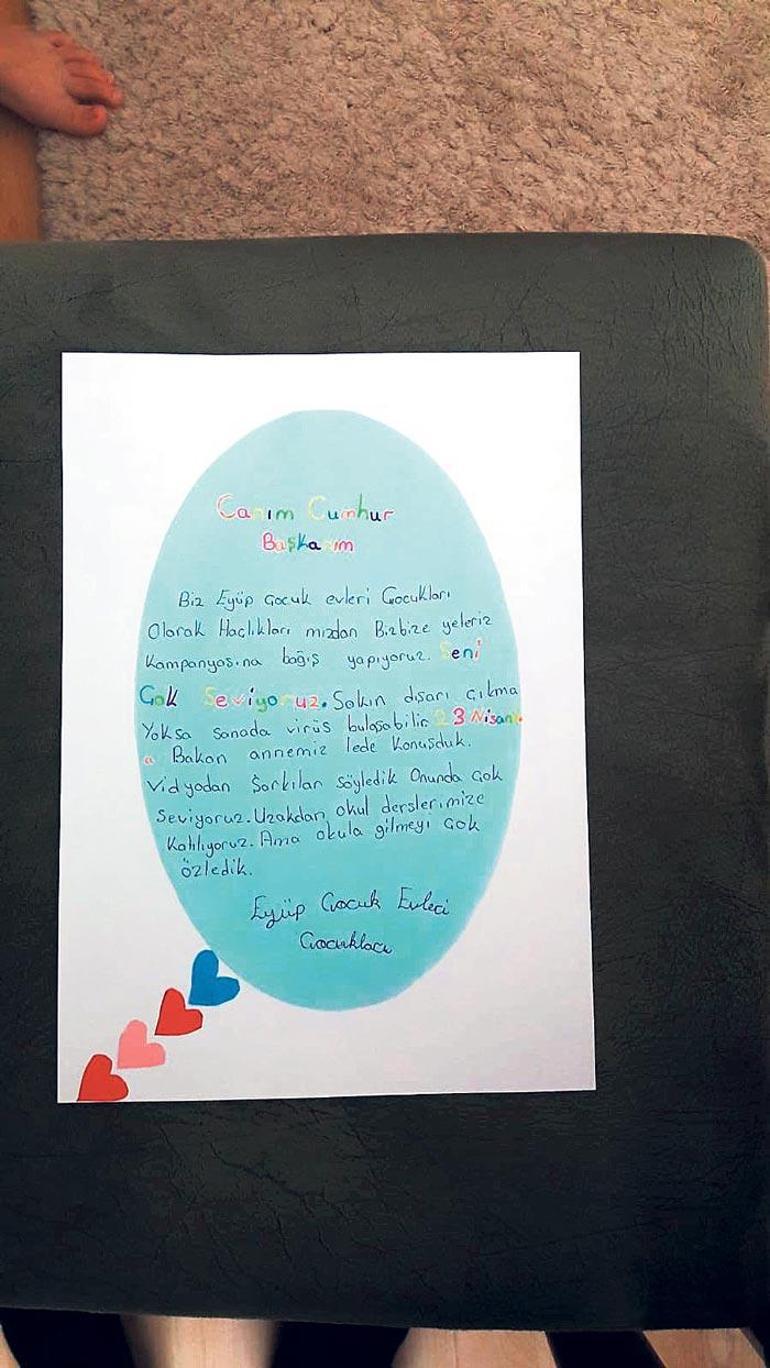 Canım Cumhur
Başkanım
Biz Eyüp Çocuk evleri Çocukları
Olarak Haçlıkları mızdan Bizbize yeteriz
Kampanyasına bağış yapıyoruz. Seni
Çok Seviyoruz. Sakın dışarı çıkma
Yoksa sanada virüs bulaşabilir. 23 Nisan
a Bakan annemiz lede Konuşduk.
Vidyodan Şarkılar söyledik Onunda çok
Seviyoruz. Uzakdan okul derslerimize
Katılıyoruz. Ama okula gitmeyi çok
özledik.
Eyüp Çocuk Evleri
Çocukları